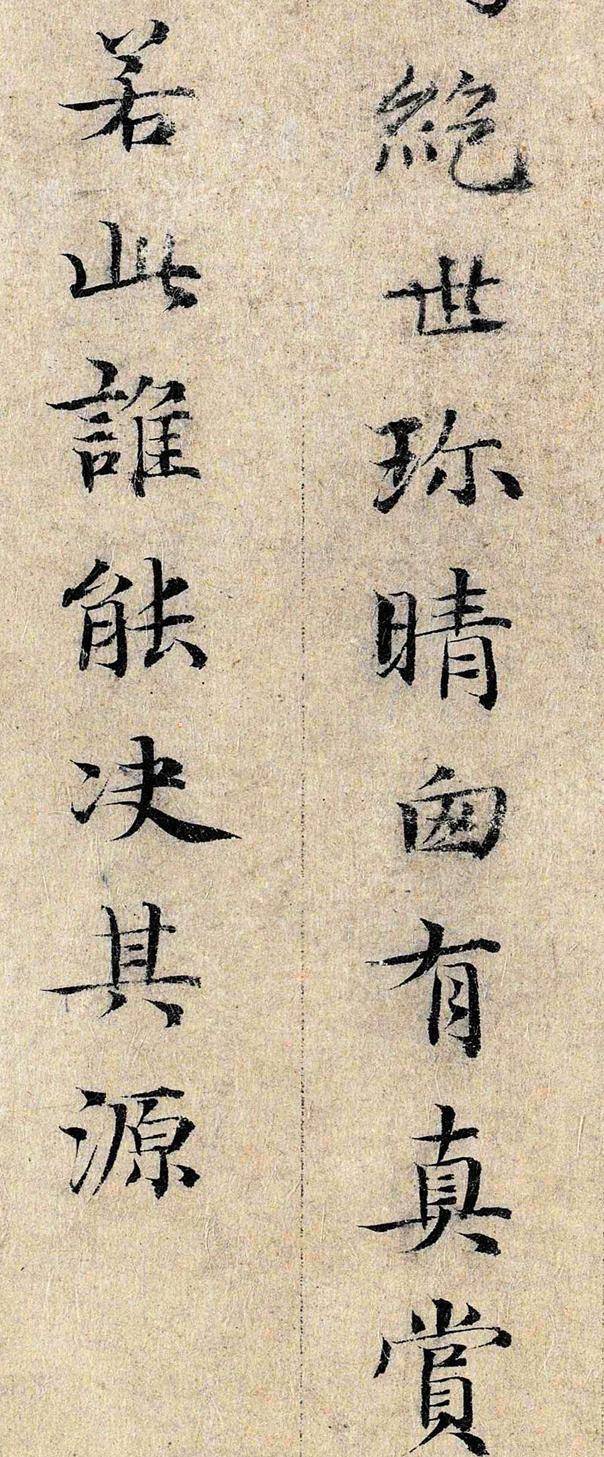 絶世珎晴匈有真賞
若此誰能决其源